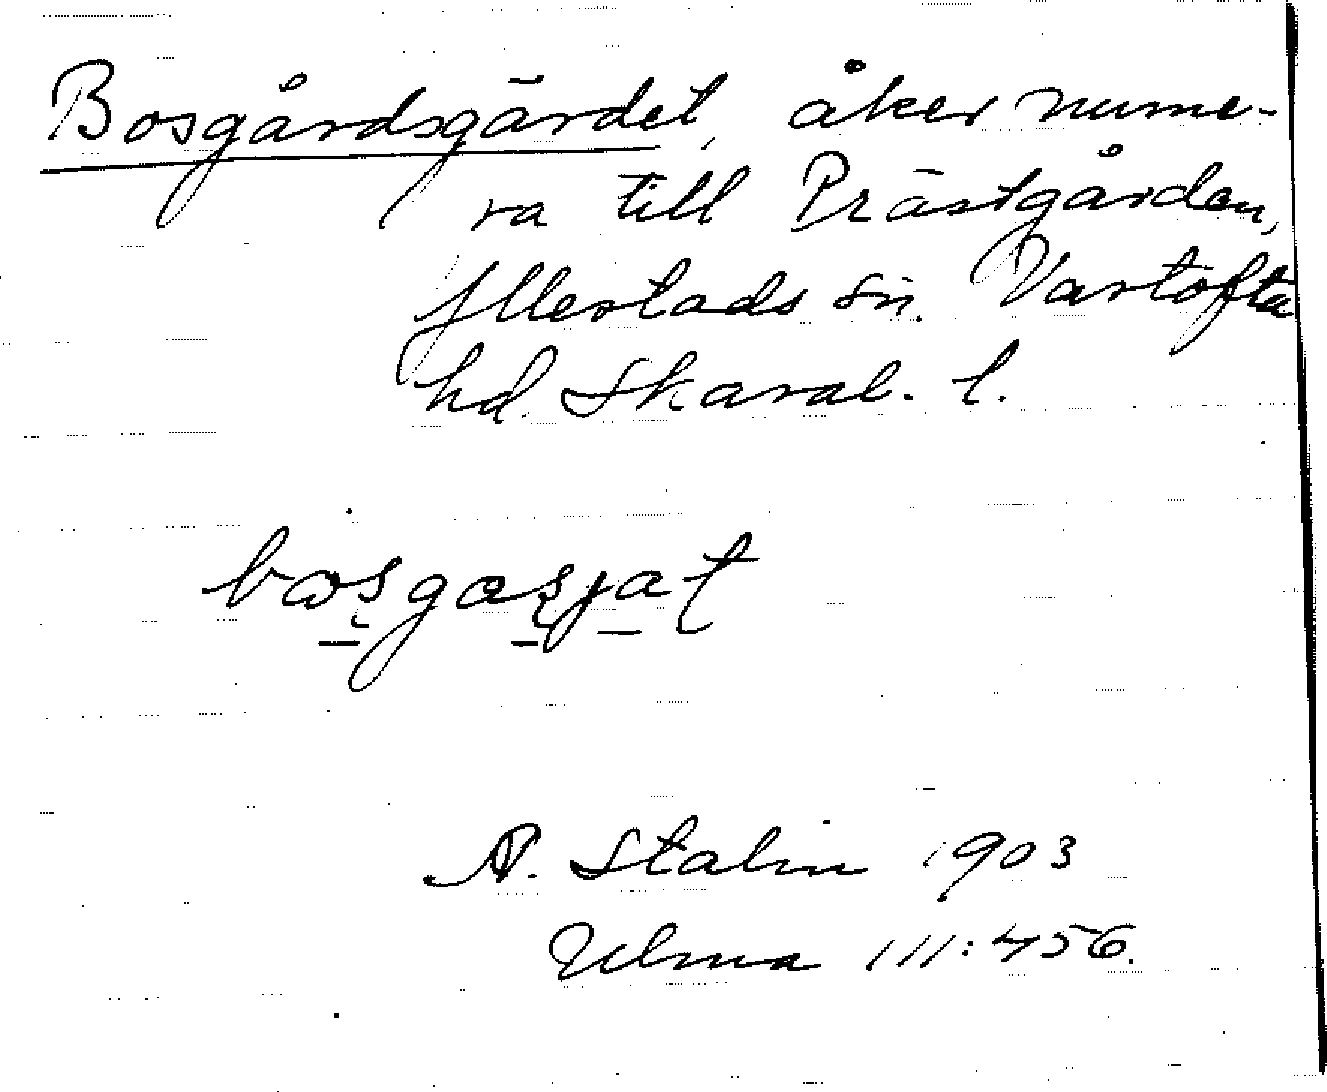 Bosgårdsgärdet, åker nume-
ra till Prästgården,
Yllestads sn. Vartofta
hd. Skarab. l.
bosgasjat
A. Stalin 1903
Ulma 111:456.